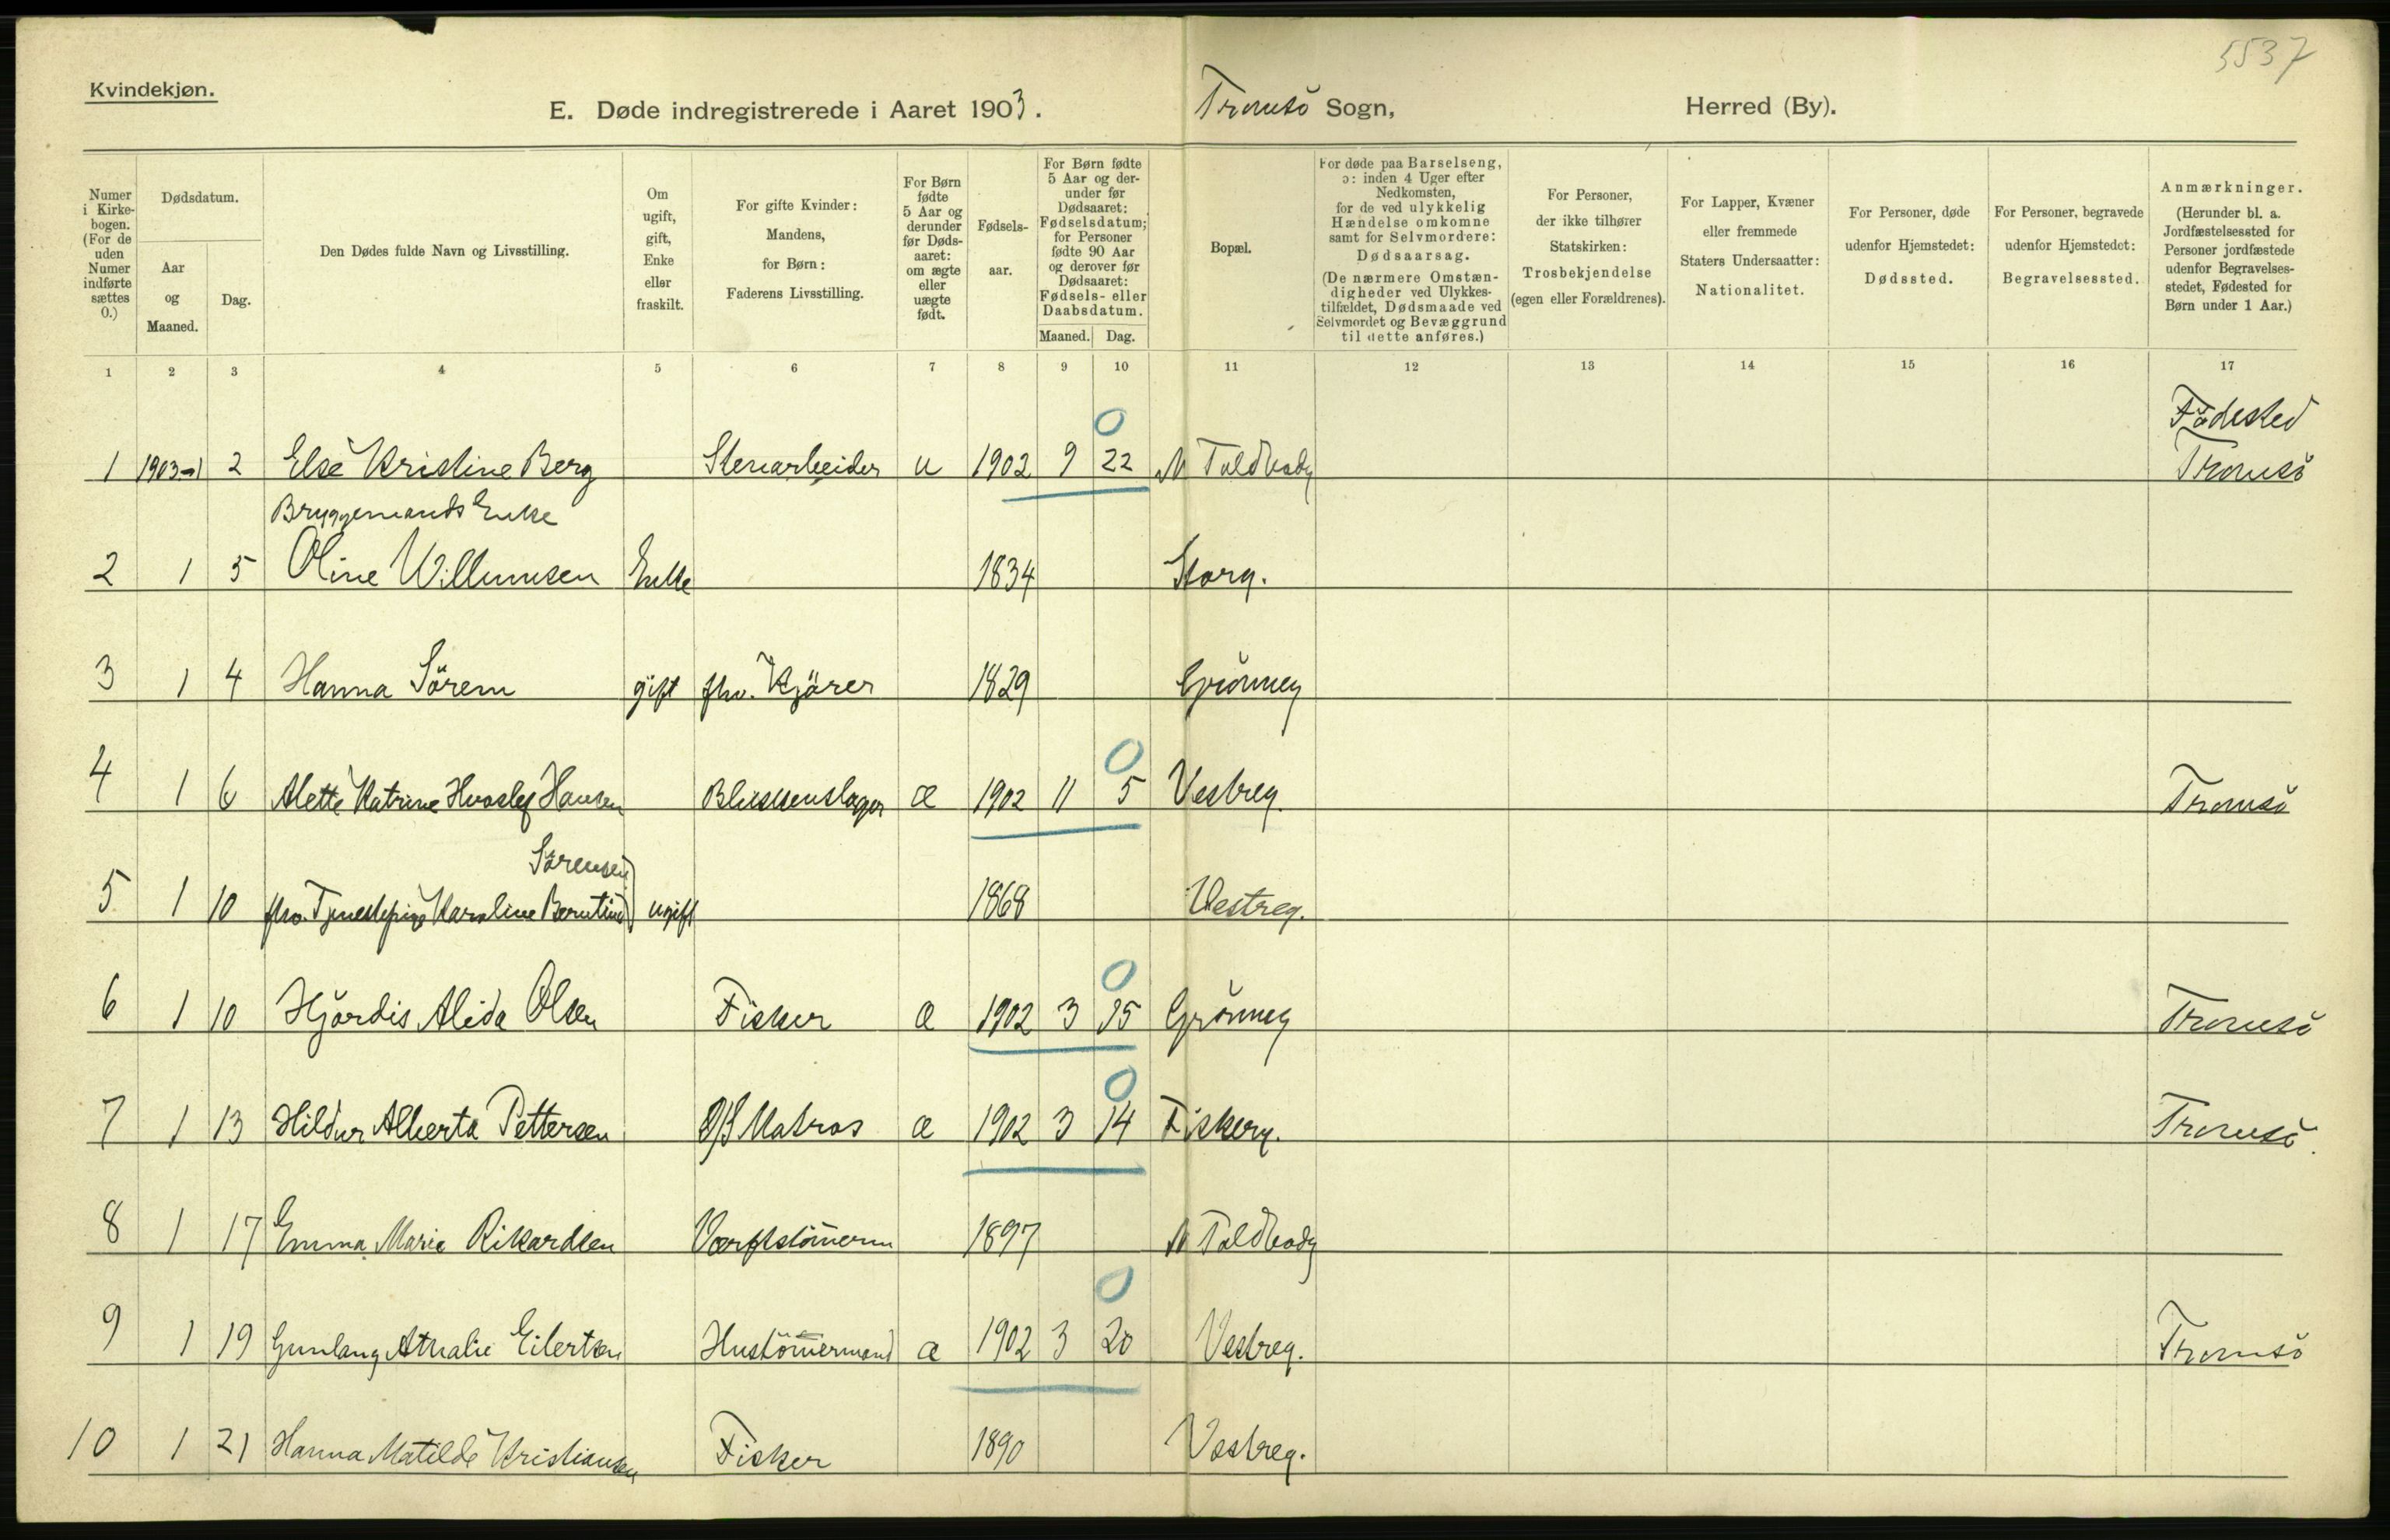 5537
Kvindekjøn.
E. Døde indregistrerede i Aaret 1903. Tromsö Sogn, Herred (By).
Numer i Kirkebogen. (For de uden Numer indførte sættes 0.)
Dødsdatum.
Aar og Maaned.
Dag.
Den Dødes fulde Navn og Livsstilling.
Om ugift, gift, Enke eller fraskilt.
For gifte Kvinder: Mandens, for Børn: Faderens Livsstilling.
For Børn fødte 5 Aar og derunder før Dødsaaret: om ægte eller uægte født.
Fødselsaar.
For Børn fødte 5 Aar og derunder før Dødsaaret: Fødselsdatum; for Personer fødte 90 Aar og derover før Dødsaaret: Fødsels- eller Daabsdatum.
Maaned. Dag.
Bopæl.
For døde paa Barselseng, ɔ: inden 4 Uger efter Nedkomsten, for de ved ulykkelig Hændelse omkomne samt for Selvmordere: Dødsaarsag. (De nærmere Omstændigheder ved Ulykkestilfældet, Dødsmaade ved Selvmordet og Bevæggrund til dette anføres.)
For Personer, der ikke tilhører Statskirken: Trosbekjendelse (egen eller Forældrenes).
For Lapper, Kvæner eller fremmede Staters Undersaatter: Nationalitet.
For Personer, døde udenfor Hjemstedet: Dødssted.
For Personer, begravede udenfor Hjemstedet: Begravelsessted.
Anmærkninger. (Herunder bl. a. Jordfæstelsessted for Personer jordfæstede udenfor Begravelsesstedet, Fødested for Børn under 1 Aar.)
1 2 3 4 5 6 7 8 9 10 11 12 13 14 15 16 17
0 Födested
1 1903-1 2 Else Kristine Berg Stenarbeider u 1902 9 22 N Toldbodg Tromsö
Bryggemands Enke
2 1 5 Oline Willumsen Enke 1834 Storg.
3 1 4 Hanna Sörem gift fhv. Kjörer 1829 Grönneg
0
4 1 6 Alette Katrine Hvoslef Hansen Blikkenslager æ 1902 11 5 Vestreg. Tromsö
Sörensen
5 1 10 fhv. Tjenestepige Karoline Berntine ugift 1868 Vestreg.
0
6 1 10 Hjördis Alida Olsen Fisker æ 1902 3 15 Grönneg Tromsö
0
7 1 13 Hildur Alberta Pettersen D/S Matros æ 1902 3 14 Fiskerg. Tromsö
8 1 17 Emma Marie Rikardsen Værftstömerm 1897 N Toldbodg
0
9 1 19 Gunlaug Athalie Eilertsen Hustömermand æ 1902 3 20 Vestreg. Tromsö
10 1 21 Hanna Matilde Kristiansen Fisker 1890 Vestreg.